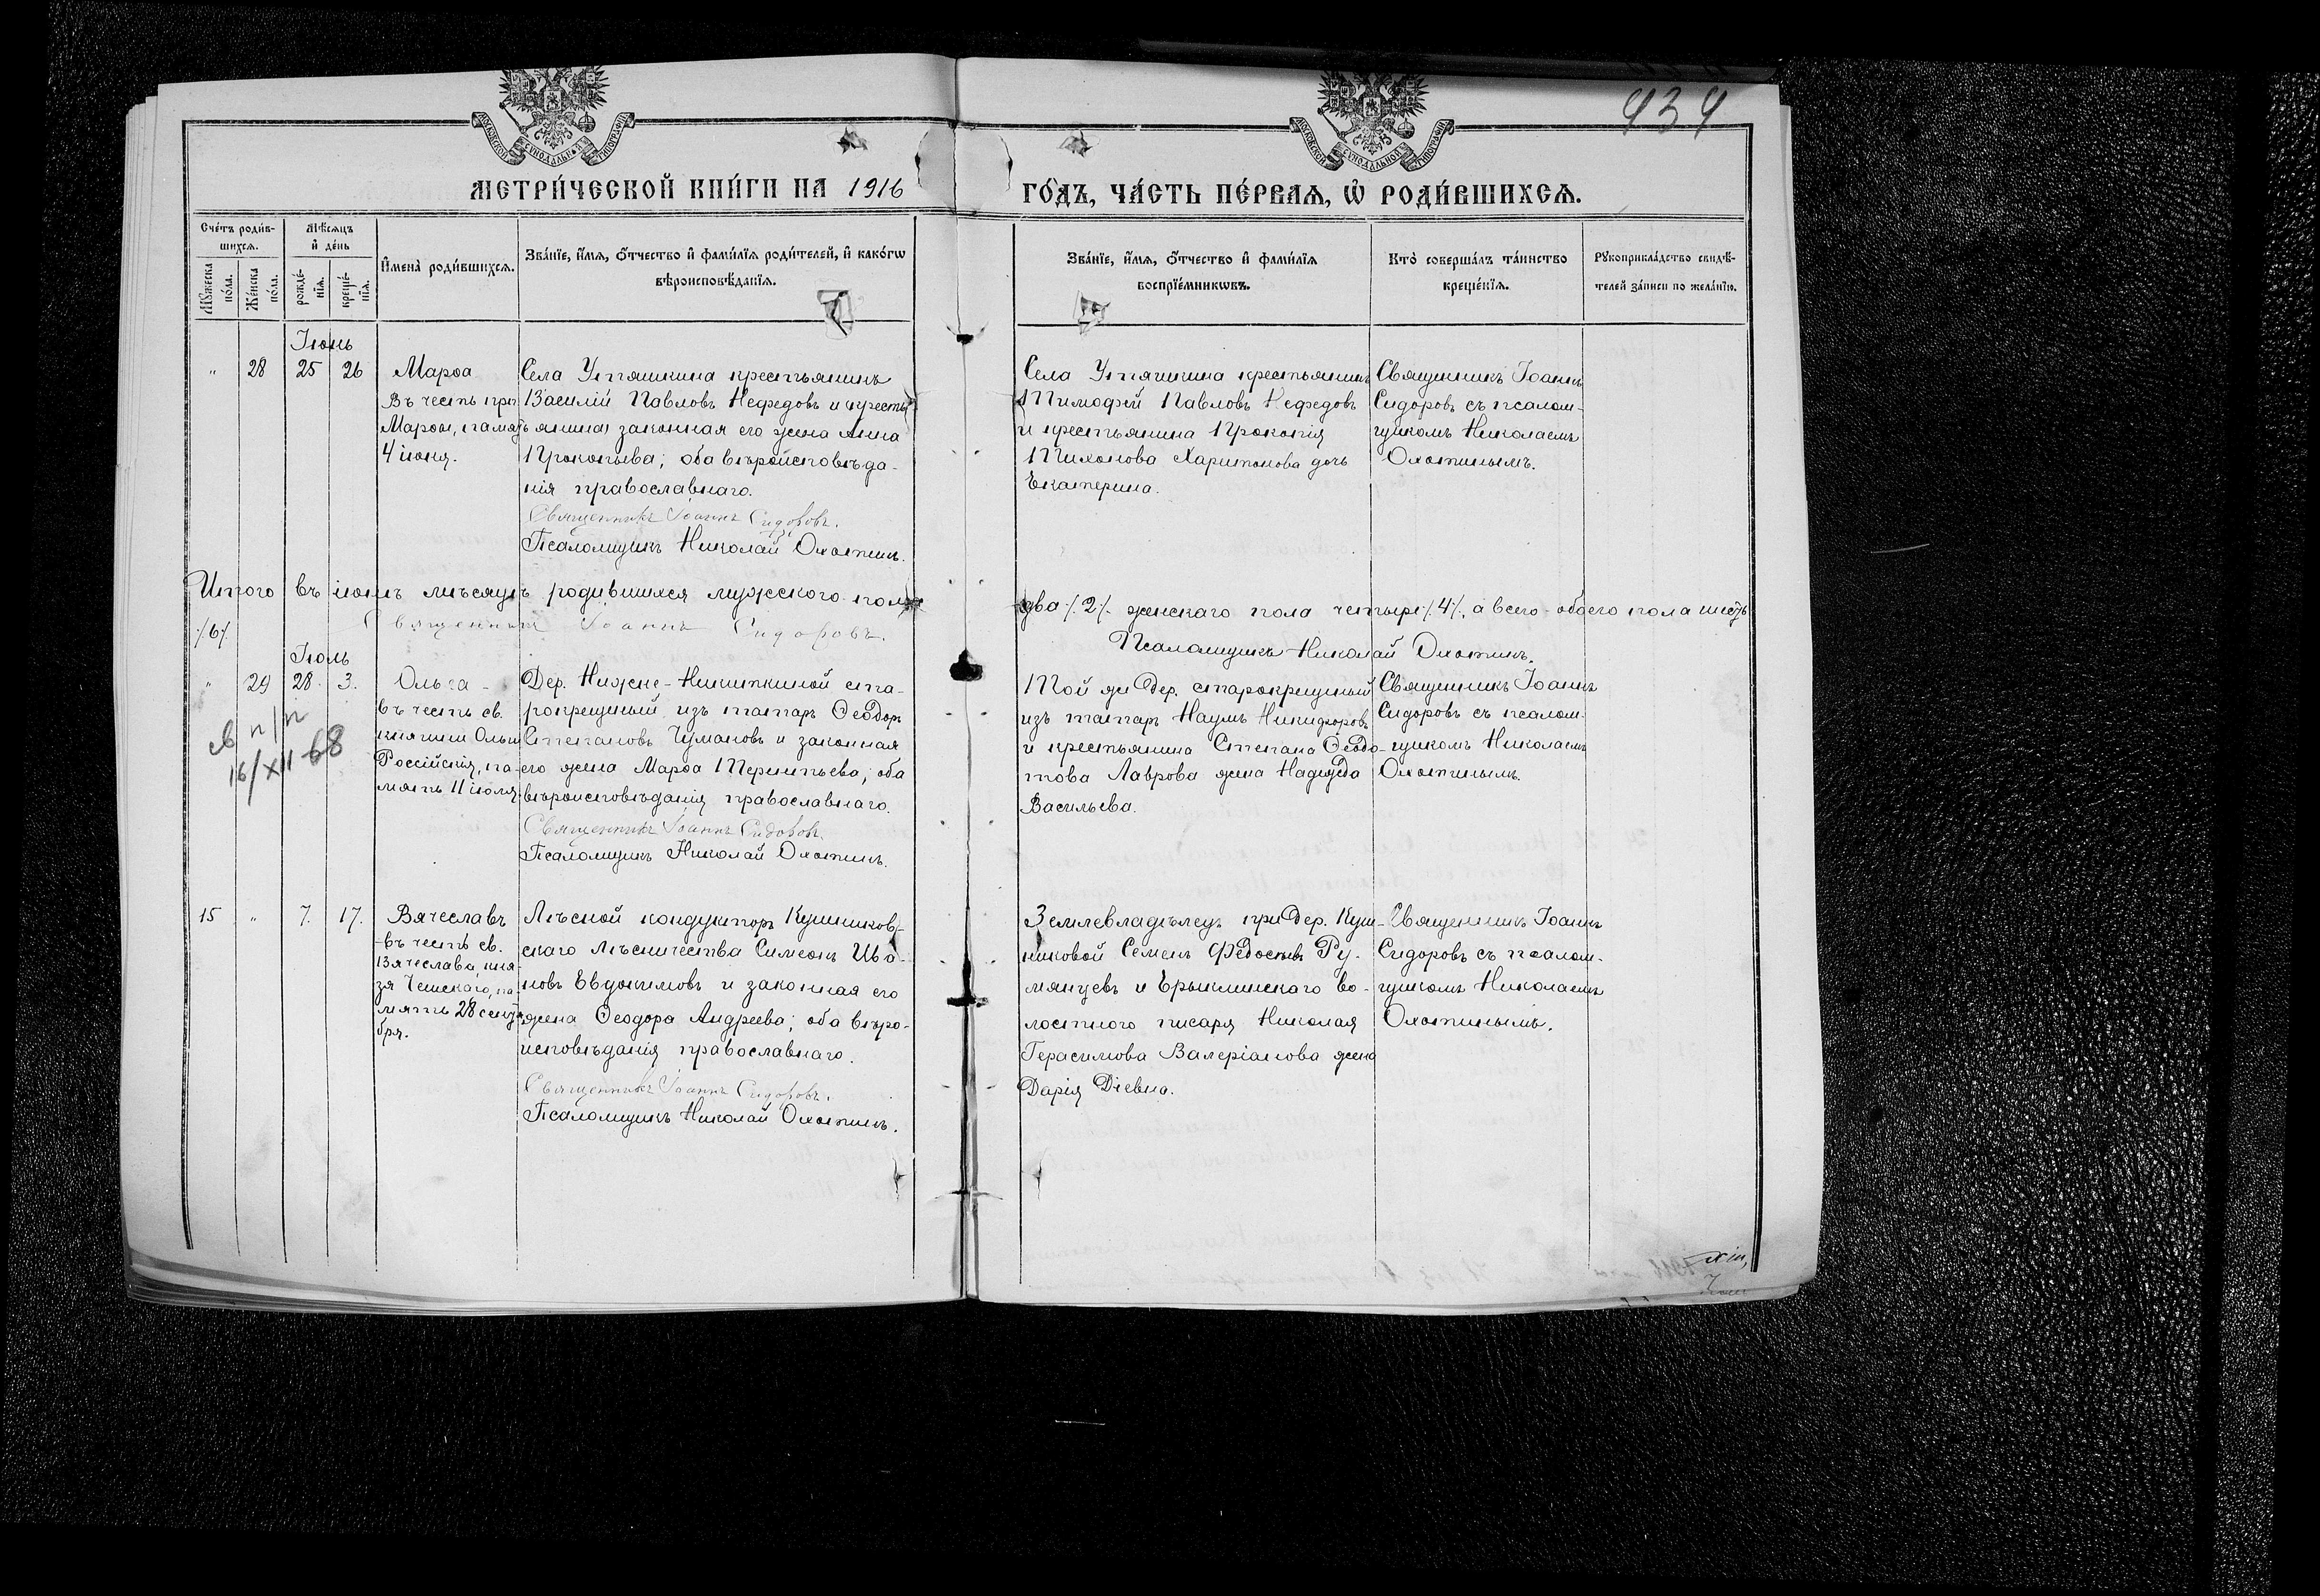 434
МОСКОВСКОЙ СѴНОДАЛЬНОЙ ТИПОГРАФІИ
МОСКОВСКОЙ СѴНОДАЛЬНОЙ ТИПОГРАФІИ
МЕТРИ́ЧЕСКОЙ КНИ́ГИ НА 1916
ГО́ДЪ, ЧА́СТЬ ПЕ́РВАѦ, Ѡ҆ РОДИ́ВШИХСѦ.
Сче́тъ роди́в-
шихсѧ.
Мꙋ́жеска по́ла.
Же́нска по́ла.
Мѣ́сѧцъ
и҆ де́нь
рожде́-
нїѧ.
креще́-
нїѧ.
И҆мена̀ роди́вшихсѧ.
Зва́нїе, и҆́мѧ, ѻ҆́тчество и҆ фами́лїѧ роди́телей, и҆ како́гѡ
вѣроисповѣ́данїѧ.
Зва́нїе, и҆́мѧ, ѻ҆́тчество и҆ фами́лїѧ
воспрїе́мникѡвъ.
Кто̀ соверша́лъ та́инство
креще́нїѧ.
Рꙋкоприкла́дство свидѣ́-
телей за́писи по жела́нїю.
Іюнь
" 28 25 26
Марѳа
Въ честь прп.
Марѳы, память
4 іюня.
Села Утяшкина крестьянинъ
Василій Павловъ Нефедовъ и
законная его жена Анна
Прокопьева; оба вѣроисповѣда-
нія православнаго.
Священникъ Іоаннъ Сидоровъ.
Псаломщикъ Николай Охотинъ.
Села Утяшкина крестьянинъ
Тимофей Павловъ Нефедовъ
и крестьянина Прокопія
Тихонова Харитонова дочь
Екатерина.
Священникъ Іоаннъ
Сидоровъ съ псалом-
щикомъ Николаемъ
Охотинымъ.
Итого въ іюнѣ мѣсяцѣ родившихся мужского пола
два ⁒2⁒ женскаго пола четыре ⁒4⁒, а всего обоего пола шесть
⁒6⁒
Священникъ Іоаннъ Сидоровъ.
Псаломщикъ Николай Охотинъ.
Іюль
" 29 28. 3.
св п/п
16/XII-68
Ольга -
въ честь св.
княгини Ольги
Россійскія, па-
мять 11 іюля.
Дер. Нижне-Никиткиной ста-
рокрещеный изъ татаръ Ѳеодоръ
Степановъ Чумановъ и законная
его жена Марѳа Терентьева; оба
вѣроисповѣданія православнаго.
Священникъ Іоаннъ Сидоровъ.
Псаломщикъ Николай Охотинъ.
Той же дер. старокрещеный
изъ татаръ Наумъ Никифоровъ
и крестьянина Степана Ѳедо-
това Лаврова жена Надежда
Васильева.
Священникъ Іоаннъ
Сидоровъ съ псалом-
щикомъ Николаемъ
Охотинымъ.
15 " 7. 17.
Вячеславъ
-въ честь св.
Вячеслава, кня-
зя Чешскаго, па-
мять 28 сентя-
бря.
Лѣсной кондукторъ Кушников-
скаго лѣсничества Симеонъ Ива-
новъ Евдокимовъ и законная его
жена Ѳеодора Андреева; оба вѣро-
исповѣданія православнаго.
Священникъ Іоаннъ Сидоровъ.
Псаломщикъ Николай Охотинъ.
Землевладѣлецъ при дер. Куш-
никовой Семенъ Ру-
мянцевъ и Ерыклинскаго во-
лостного писаря Николая
Герасимова Валеріанова жена
Дарія Діевна.
Священникъ Іоаннъ
Сидоровъ съ псалом-
щикомъ Николаемъ
Охотинымъ.